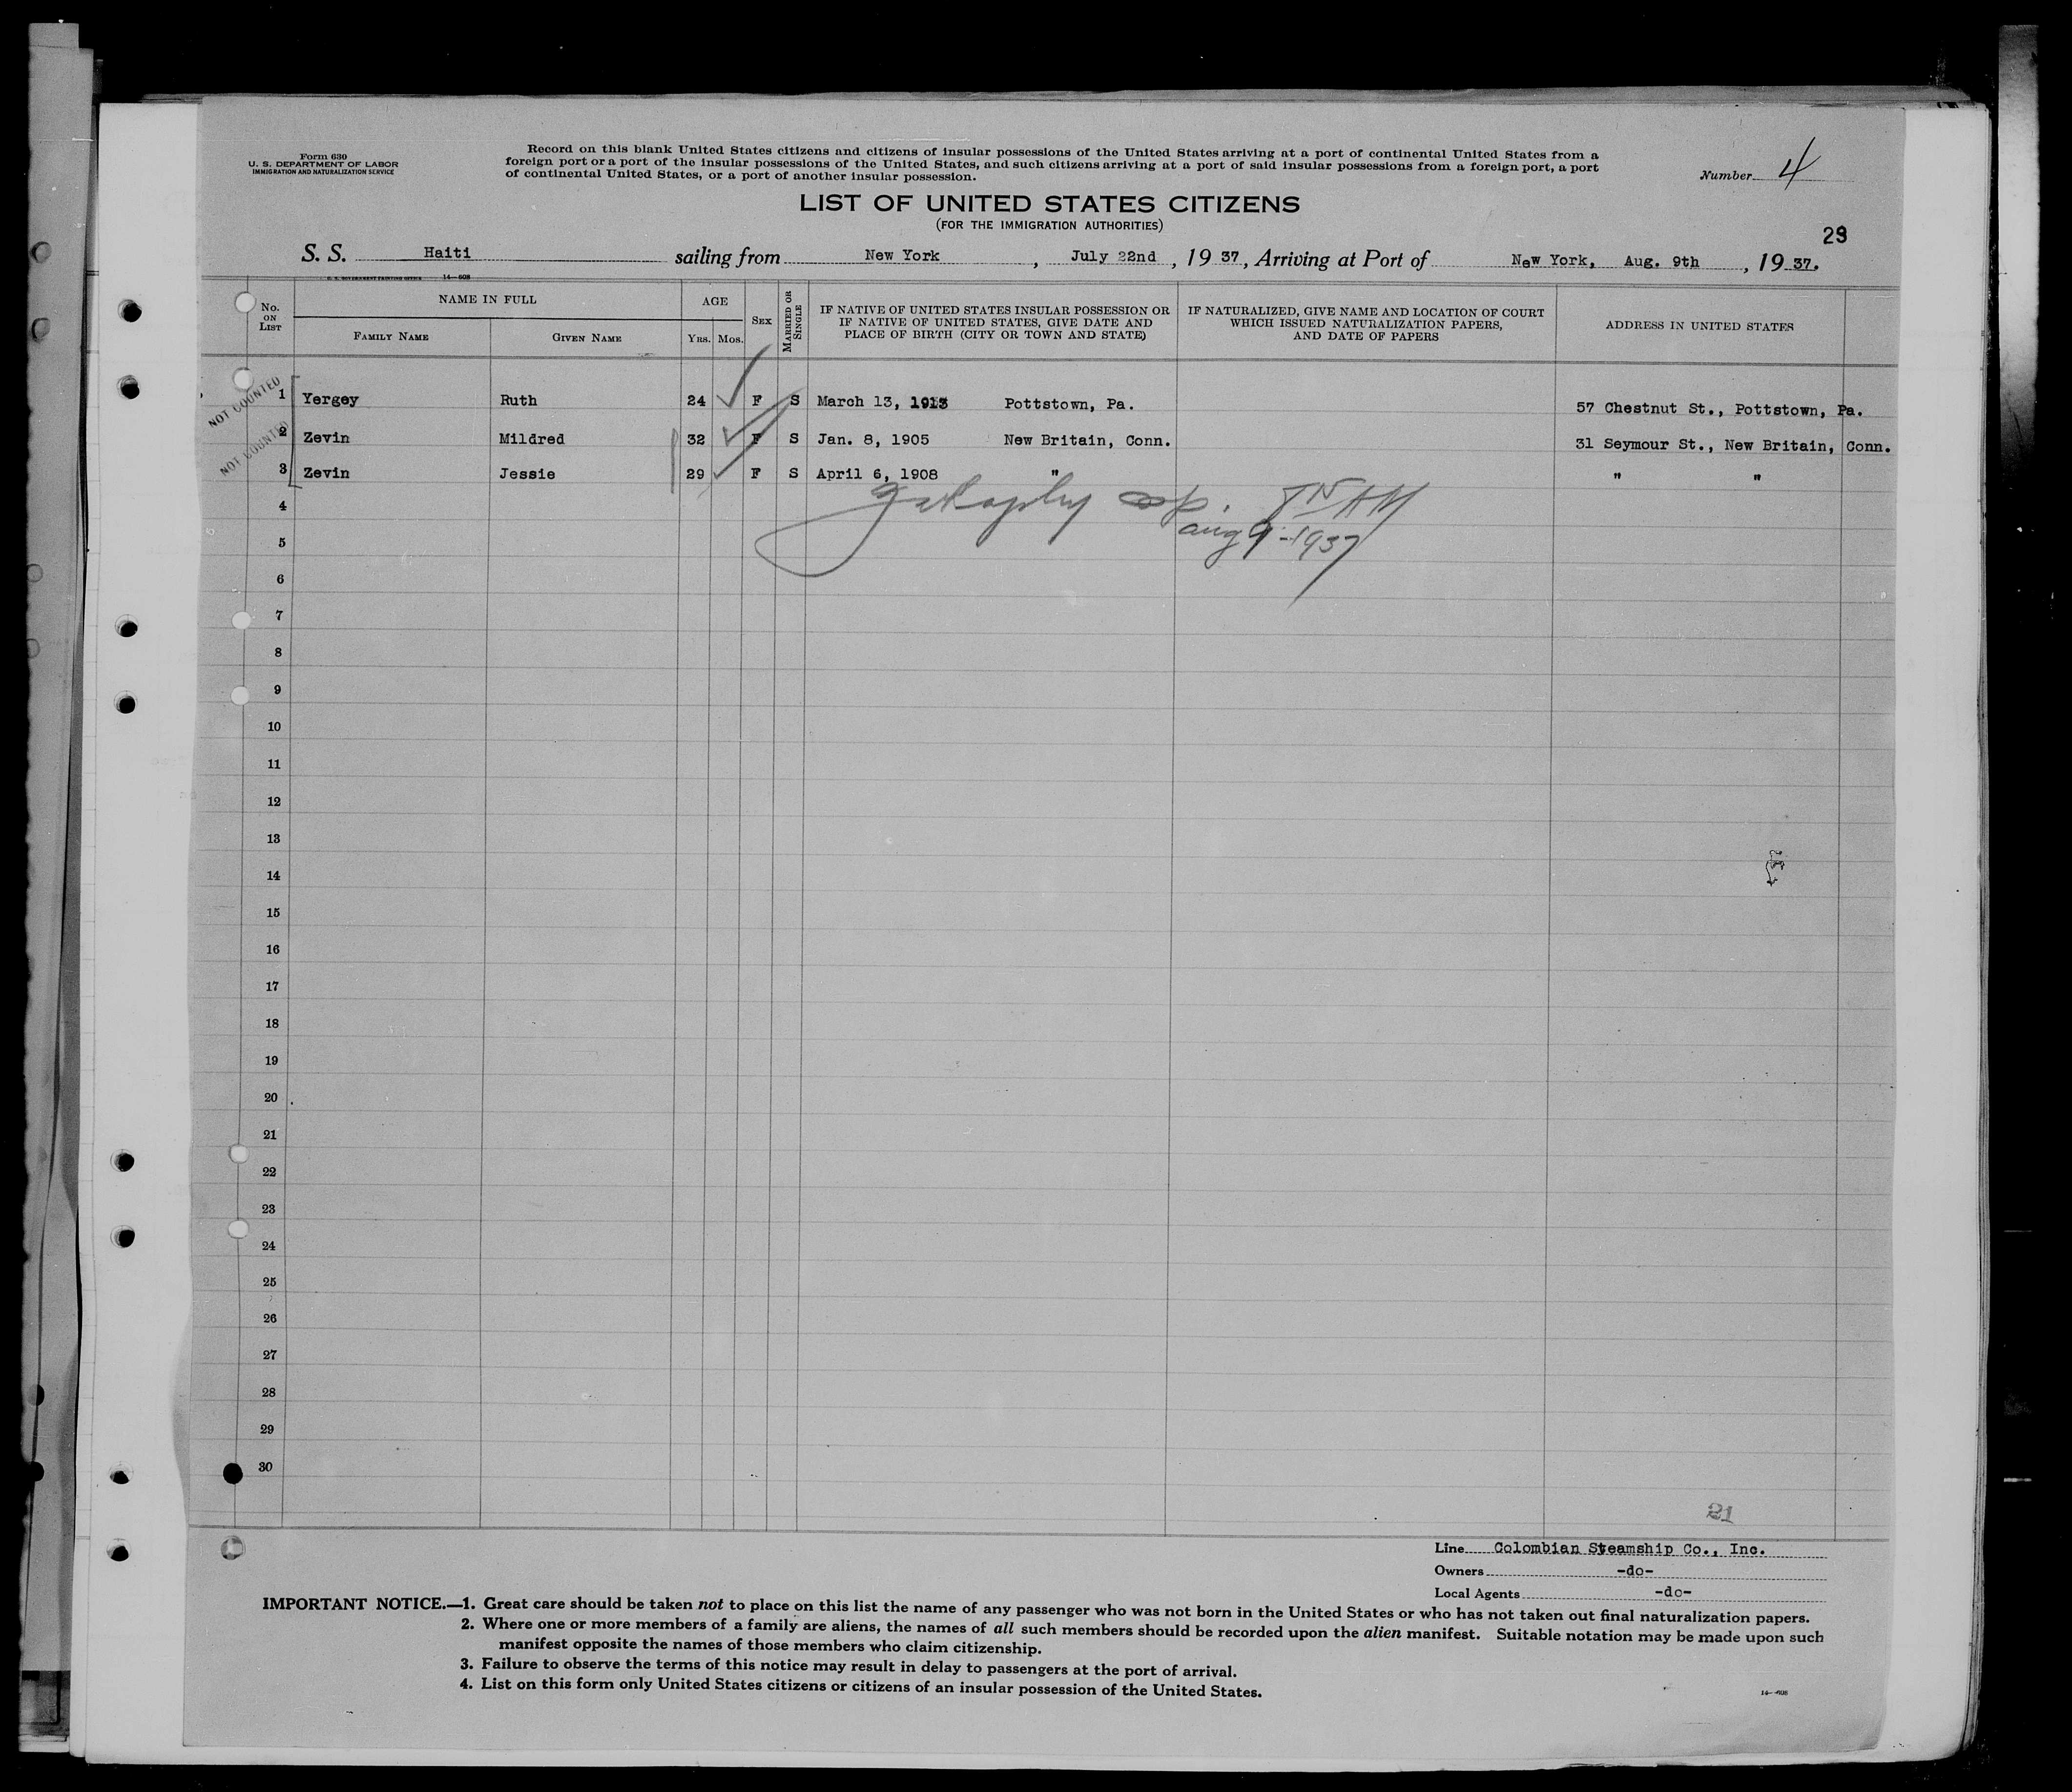 Form 630
U. S. DEPARTMENT OF LABOR
IMMIGRATION AND NATURALIZATION SERVICE
Record on this blank United States citizens and citizens of insular possessions of the United States arriving at a port of continental United States from a
foreign port or a port of the insular possessions of the United States, and such citizens arriving at a port of said insular possessions from a foreign port, a port
of continental United States, or a port of another insular possession.
Number 4
LIST OF UNITED STATES CITIZENS
(FOR THE IMMIGRATION AUTHORITIES)
29
S. S. Haiti sailing from New York, July 22nd, 1937, Arriving at Port of New York, Aug. 9th, 1937.
U. S. GOVERNMENT PRINTING OFFICE 14—608
No. ON LIST
NAME IN FULL
FAMILY NAME GIVEN NAME
AGE
YRS. MOS.
SEX
MARRIED OR SINGLE
IF NATIVE OF UNITED STATES INSULAR POSSESSION OR
IF NATIVE OF UNITED STATES, GIVE DATE AND
PLACE OF BIRTH (CITY OR TOWN AND STATE)
IF NATURALIZED, GIVE NAME AND LOCATION OF COURT
WHICH ISSUED NATURALIZATION PAPERS,
AND DATE OF PAPERS
ADDRESS IN UNITED STATES
NOT COUNTED
1 Yergey Ruth 24 F S March 13, 1913 Pottstown, Pa. 57 Chestnut St., Pottstown, Pa.
NOT COUNTED
2 Zevin Mildred 32 F S Jan. 8, 1905 New Britain, Conn. 31 Seymour St., New Britain, Conn.
3 Zevin Jessie 29 F S April 6, 1908 " " "
4
aug 9-1937
5
6
7
8
9
10
11
12
13
14
15
16
17
18
19
20
21
22
23
24
25
26
27
28
29
30
21
Line Colombian Steamship Co., Inc.
Owners -do-
Local Agents -do-
IMPORTANT NOTICE.—1. Great care should be taken not to place on this list the name of any passenger who was not born in the United States or who has not taken out final naturalization papers.
2. Where one or more members of a family are aliens, the names of all such members should be recorded upon the alien manifest. Suitable notation may be made upon such
manifest opposite the names of those members who claim citizenship.
3. Failure to observe the terms of this notice may result in delay to passengers at the port of arrival.
4. List on this form only United States citizens or citizens of an insular possession of the United States.
14—608